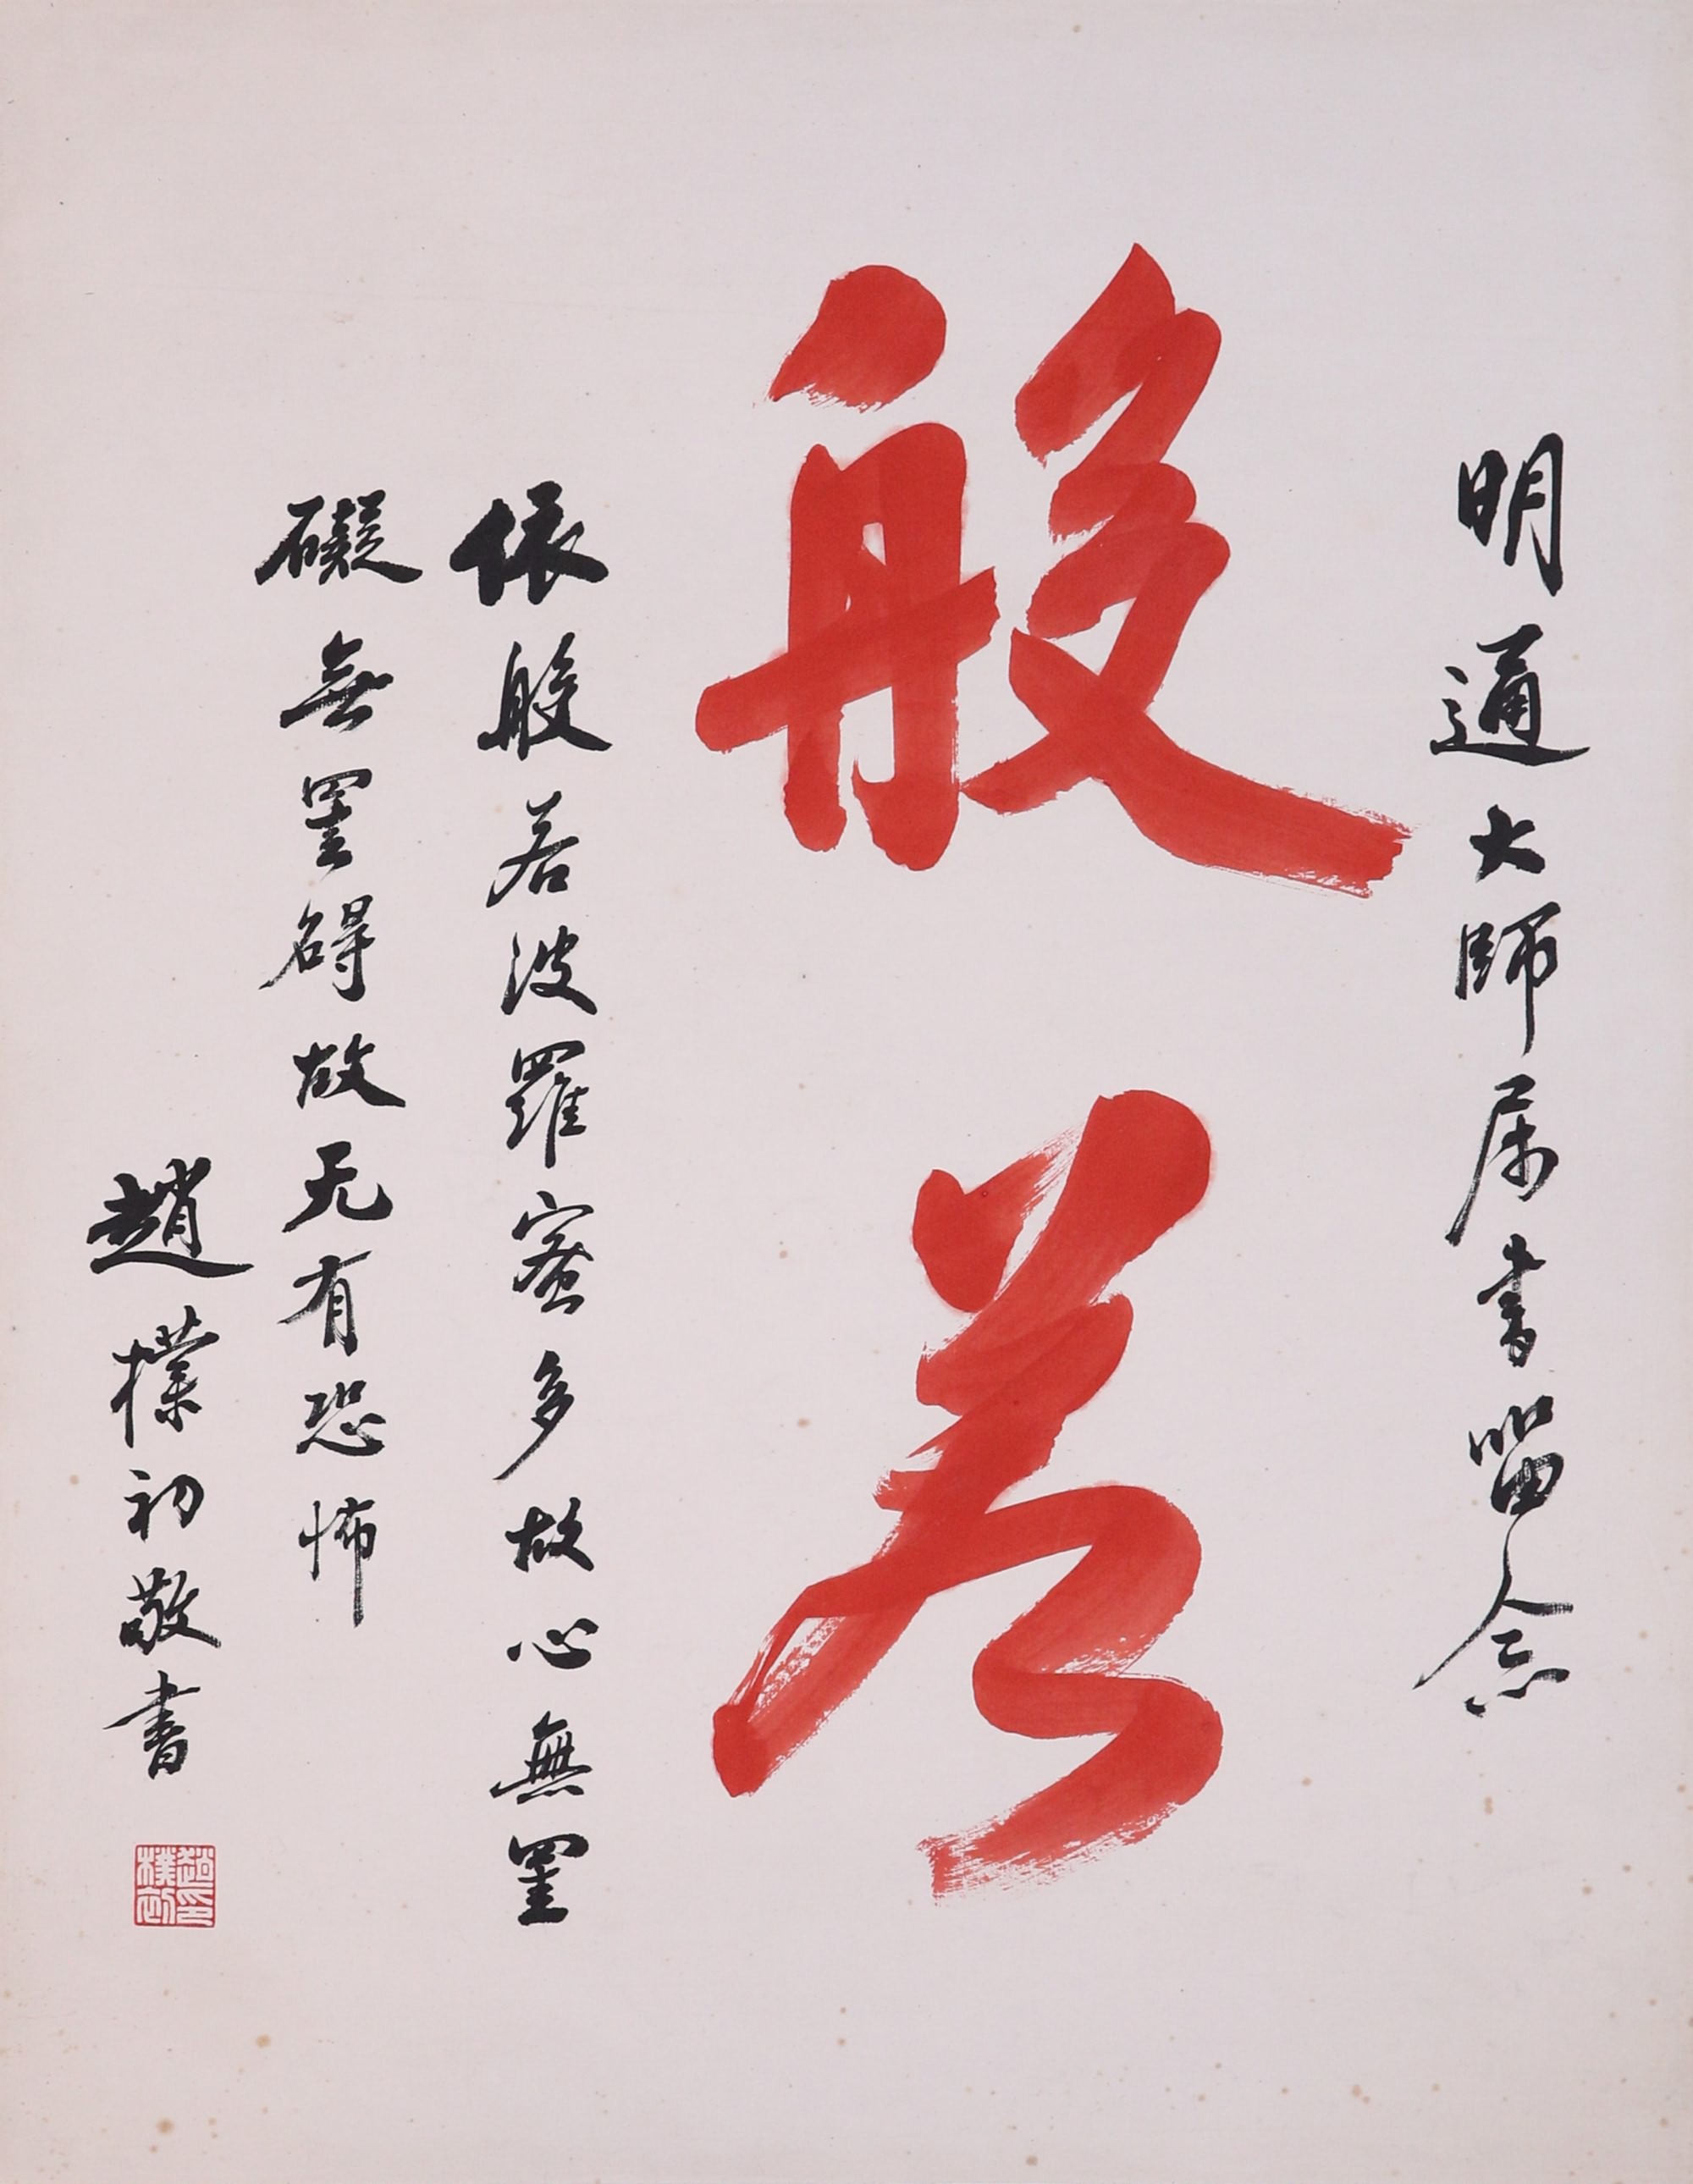 明通大師属書留念
般若
依般若波羅蜜多故心無罣
礙無罣碍故无有恐怖
趙樸初敬書
趙樸初印